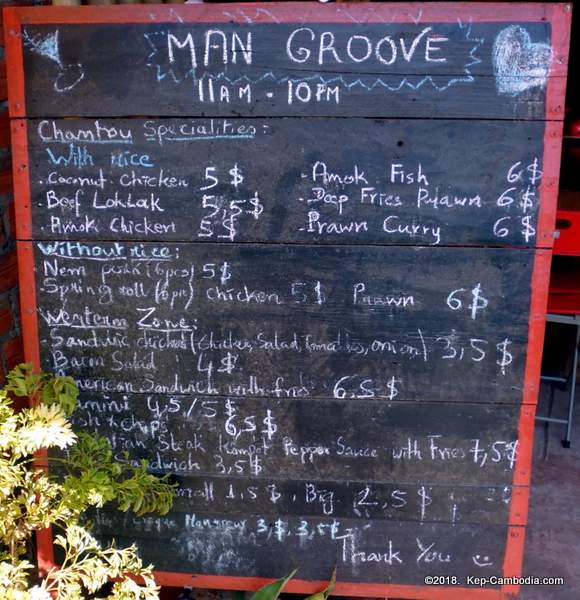 MAN GROOVE
11AM - 10PM
Chamtou Specialities:
With rice
. Coconut Chicken 5 $
. Beef LokLak 5,5 $
. Amok Chicken 5 $
- Amok Fish 6 $
- Deep Fries Prawn 6 $
- Prawn Curry 6 $
Without rice:
Nem pork (6pcs) 5 $
. Spring roll (6pr) Chicken 5 $ Prawn 6 $
Western Zone:
. Sandwic chicked (Chicken, Salad, tomatoes, onion) 3,5 $
. Bacon Salad 4 $
merican Sandwich with fries 6,5 $
4,5/5 $
sh & chips 6,5 $
Steak Kampot Pepper Sauce with Fries 7,5 $
Sandwich 3,5 $
mall 1,5 $, Big 2,5 $
3 $, 3,5 $
Thank You
©2018. Kep-Cambodia.com